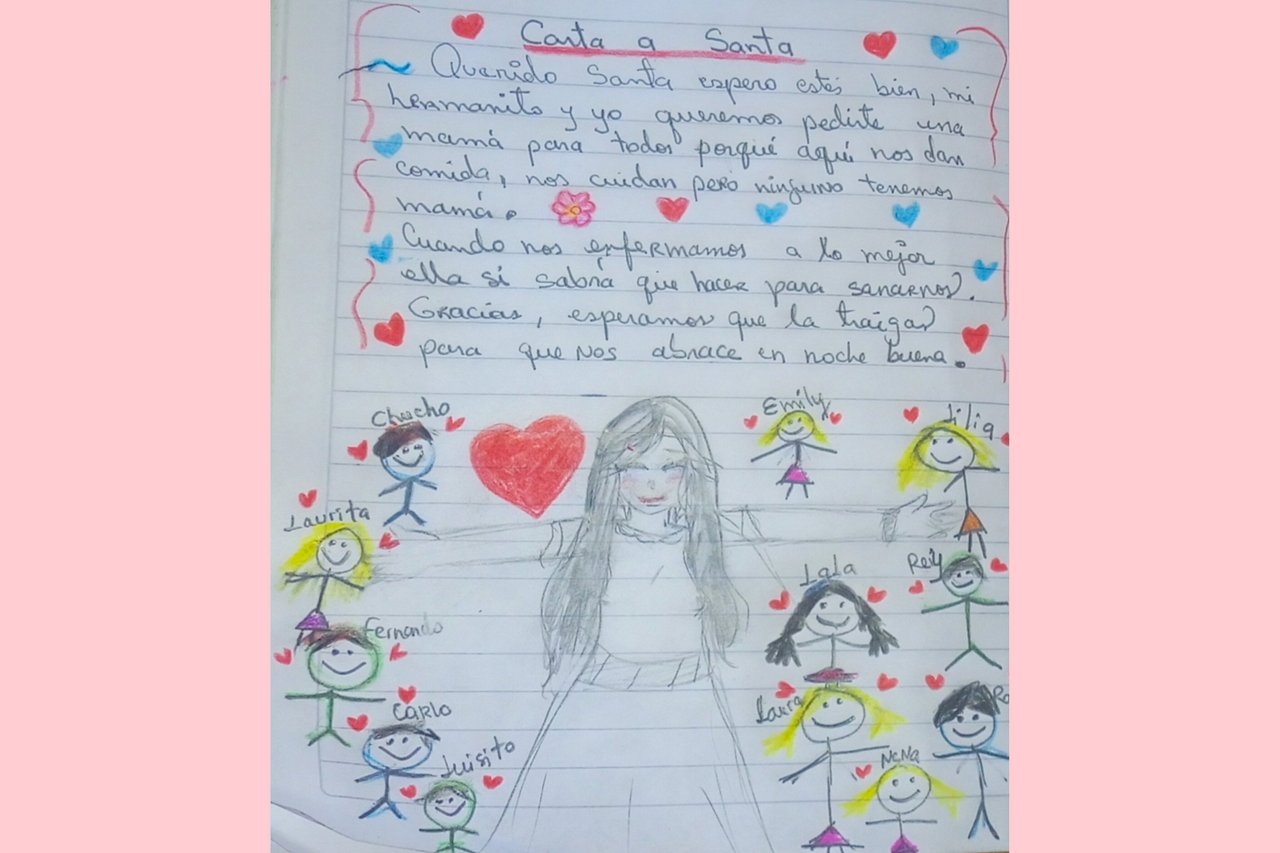 Carta a Santa
Querido Santa espero estés bien, mi
hermanito y yo queremos pedirte una
mamá para todos porqué aquí nos dan
comida, nos cuidan pero ninguno tenemos
mamá.
Cuando nos enfermamos a lo mejor
ella si sabrá que hacer para sanarnos.
Gracias, esperamos que la traigas
para que nos abrace en noche buena.
Chucho
Emily
Lilia
Laurita
Lala
Rey
Fernando
Carlo
Luisito
Laura
Ro
NeNa